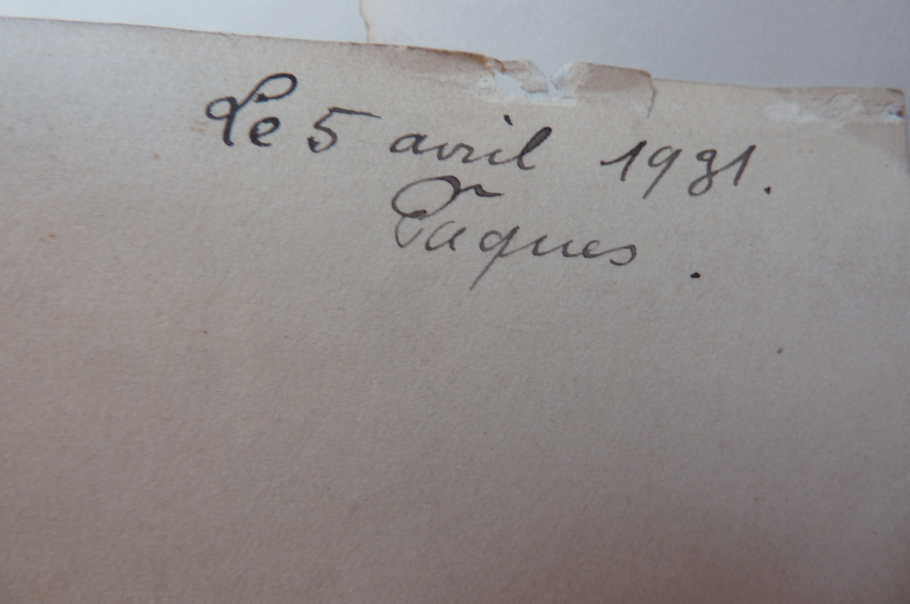 Le 5 avril 1931.
Pâques.